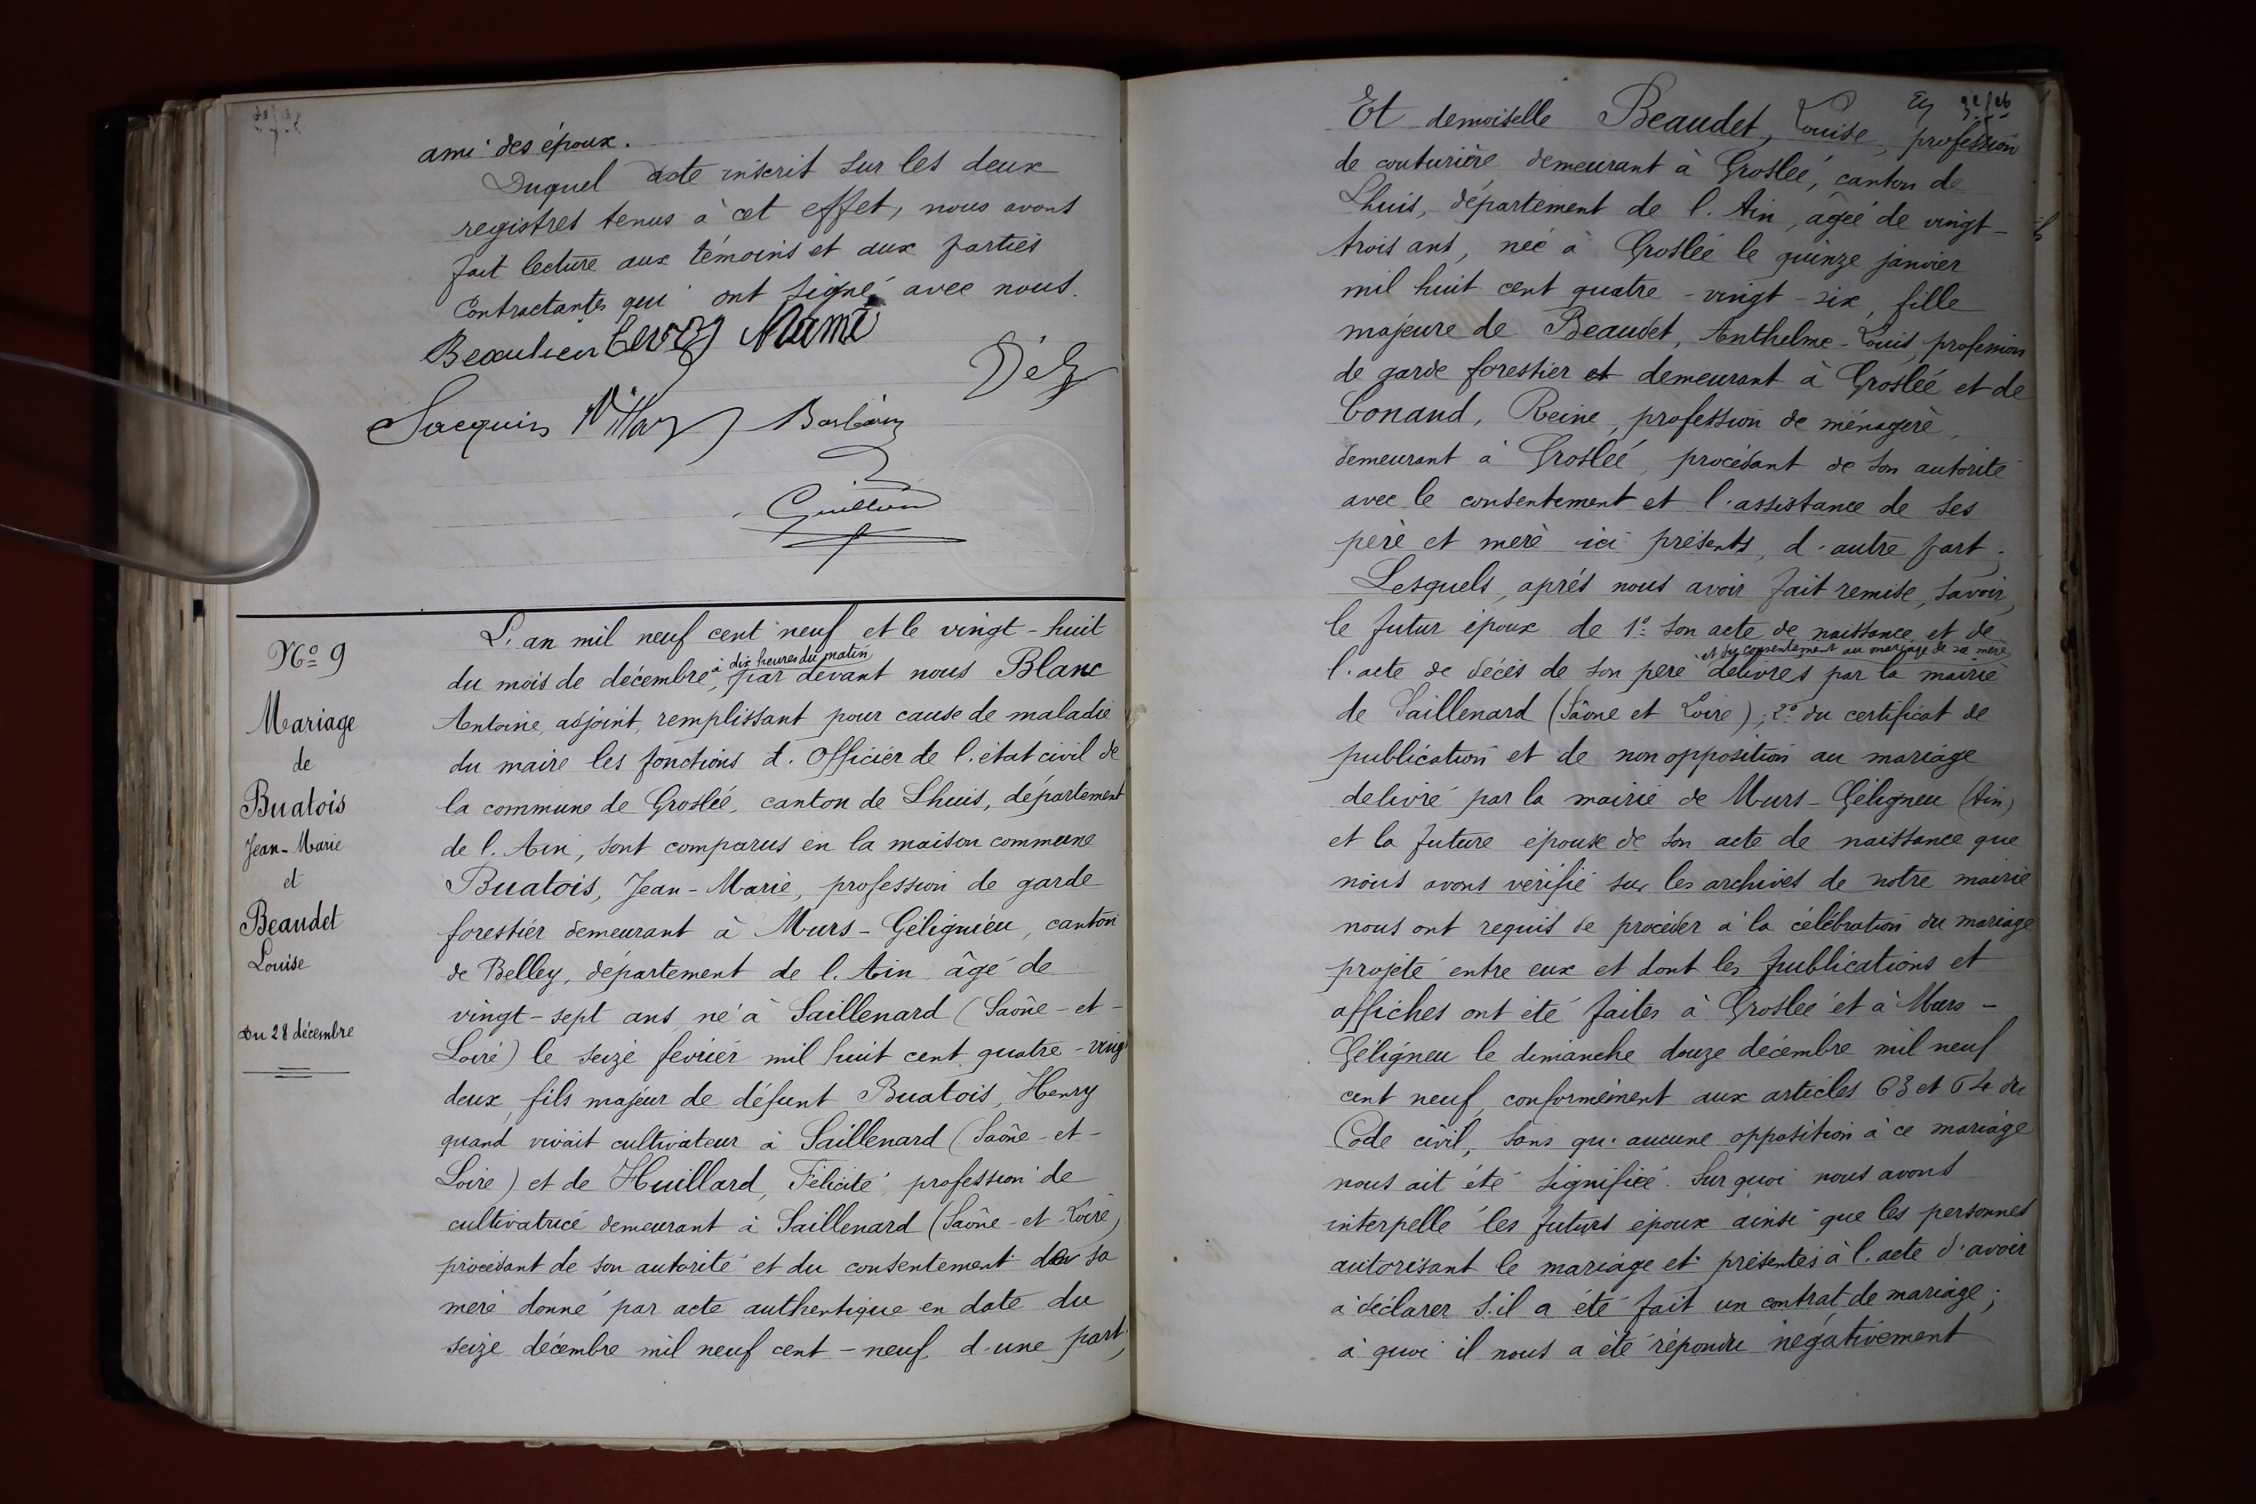 ami des époux.
Duquel acte inscrit sur les deux
registres tenus à cet effet, nous avons
fait lecture aux témoins et aux parties
contractantes qui ont signé avec nous.
Beaulieu
Jacquin
Guillon
No 9
Mariage
de
Buatois
Jean-Marie
et
Beaudet
Louise
Du 28 décembre
L'an mil neuf cent neuf et le vingt-huit
à dix heures du matin
du mois de décembre, par devant nous Blanc
Antoine, adjoint, remplissant pour cause de maladie
du maire les fonctions d'Officier de l'état civil de
la commune de Groslée, canton de Lhuis, département
de l'Ain, sont comparus en la maison commune
Buatois, Jean-Marie, profession de garde
forestier demeurant à Murs-Géligniéu, canton
de Belley, département de l'Ain âgé de
vingt-sept ans né à Saillenard (Saône-et-
Loire) le seize février mil huit cent quatre-vingt
deux, fils majeur de défunt Buatois, Henry
quand vivait cultivateur à Saillenard (Saône-et-
Loire) et de Huillard, Félicité profession de
cultivatrice demeurant à Saillenard (Saône-et-Loire)
procédant de son autorité et du consentement de sa
mère donné par acte authentique en date du
seize décembre mil neuf cent-neuf d'une part,
Et demoiselle Beaudet, Louise, profession
de couturière demeurant à Groslée, canton de
Lhuis, département de l'Ain, âgée de vingt-
trois ans, née à Groslée le quinze janvier
mil huit cent quatre-vingt-six, fille
majeure de Beaudet, Anthelme-Louis, profession
de garde forestier et demeurant à Groslée et de
Conand, Reine, profession de ménagère,
demeurant à Groslée, procédant de son autorité
avec le consentement et l'assistance de ses
père et mère ici présents, d'autre part.
Lesquels, après nous avoir fait remise, savoir,
le futur époux de 1o son acte de naissance et de
et du consentement au mariage de sa mère
l'acte de décès de son père délivrés par la mairie
de Saillenard (Saône et Loire); 2o du certificat de
publication et de non opposition au mariage
delivré par la mairie de Murs-Géligneu (Ain)
et la future épouse de son acte de naissance que
nous avons vérifié sur les archives de notre mairie
nous ont requis de procéder à la célébration du mariage
projeté entre eux et dont les publications et
affiches ont été faites à Groslée et à Murs-
Géligneu le dimanche douze décembre mil neuf
cent neuf, conformément aux articles 63 et 64 du
Code civil, sans qu'aucune opposition à ce mariage
nous ait été signifiée. Sur quoi nous avons
interpellé les futurs époux ainsi que les personnes
autorisant le mariage et présentes à l'acte d'avoir
à déclarer s'il a été fait un contrat de mariage;
à quoi il nous a été répondu négativement